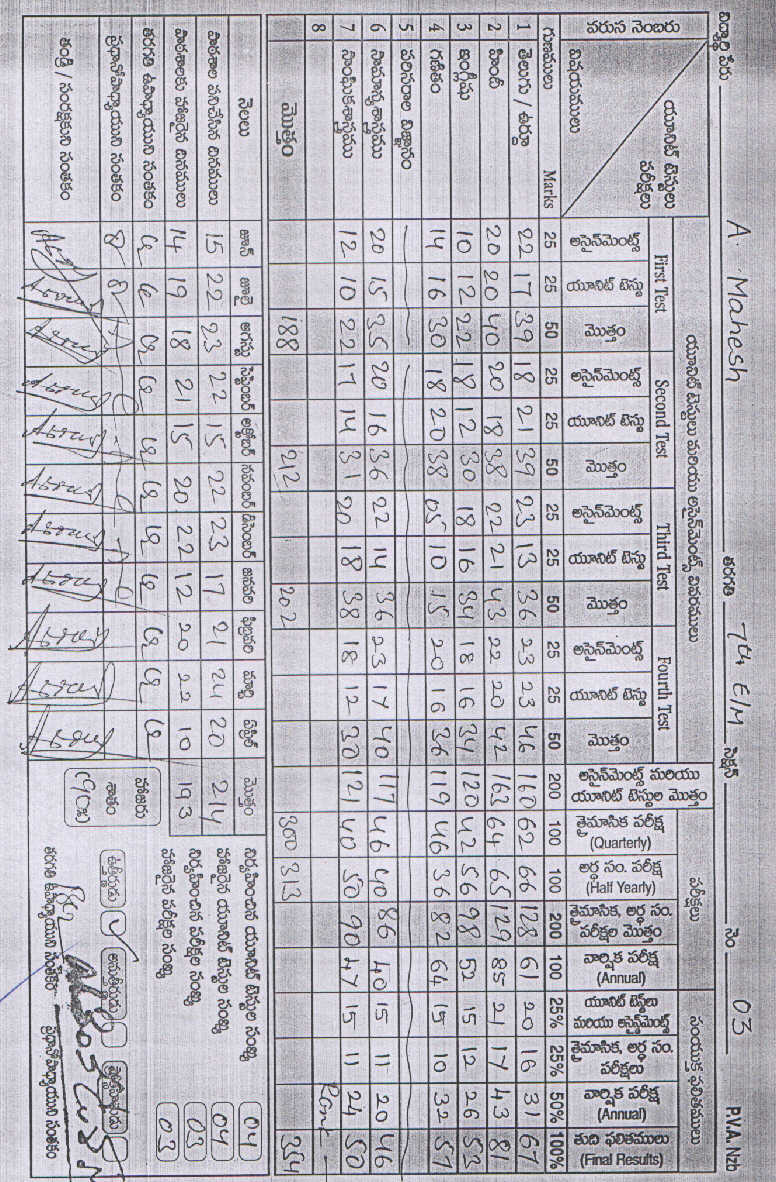 విద్యార్థి పేరు A. Mahesh తరగతి 7th E/M సెక్షన్ నెం 03 P.V.A. Nzb
వరుస నెంబరు యూనిట్ టెస్టులు పరీక్షలు విషయములు యూనిట్ టెస్టులు మరియు అసైన్‌మెంట్స్ వివరములు పరీక్షలు సంయుక్త ఫలితములు
First Test Second Test Third Test Fourth Test
అసైన్‌మెంట్స్ యూనిట్ టెస్టు మొత్తం అసైన్‌మెంట్స్ యూనిట్ టెస్టు మొత్తం అసైన్‌మెంట్స్ యూనిట్ టెస్టు మొత్తం అసైన్‌మెంట్స్ యూనిట్ టెస్టు మొత్తం అసైన్‌మెంట్స్ మరియు యూనిట్ టెస్టుల మొత్తం త్రైమాసిక పరీక్ష (Quarterly) అర్థ సం. పరీక్ష (Half Yearly) త్రైమాసిక, అర్థ సం. పరీక్షల మొత్తం వార్షిక పరీక్ష (Annual) యూనిట్ టెస్ట్‌లు మరియు అసైన్‌మెంట్స్ త్రైమాసిక, అర్థ సం. పరీక్షలు వార్షిక పరీక్ష (Annual) తుది ఫలితములు (Final Results)
గుణములు Marks 25 25 50 25 25 50 25 25 50 25 25 50 200 100 100 200 100 25% 25% 50% 100%
1 తెలుగు / ఉర్దూ 22 17 39 18 21 39 23 13 36 23 23 46 160 62 66 128 61 20 16 31 67
2 హిందీ 20 20 40 20 18 38 22 21 43 22 20 42 163 64 65 129 85 21 17 43 81
3 ఇంగ్లీషు 10 12 22 18 12 30 18 16 34 18 16 34 120 42 56 98 52 15 12 26 53
4 గణితం 14 16 30 18 20 38 05 10 15 20 16 36 119 46 36 82 64 15 10 32 57
5 పరిసరాల విజ్ఞానం
6 సామాన్యశాస్త్రము 20 15 35 20 16 36 22 14 36 23 17 40 117 46 40 86 40 15 11 20 46
7 సాంఘికశాస్త్రము 12 10 22 17 14 31 20 18 38 18 12 30 121 40 50 90 47 15 11 24 50
8
మొత్తం 188 212 202 300 313 354
నెలలు జూన్ జూలై ఆగస్టు సెప్టెంబర్ అక్టోబర్ నవంబర్ డిసెంబర్ జనవరి ఫిబ్రవరి మార్చి ఏప్రిల్ మొత్తం
పాఠశాల పనిచేసిన దినములు 15 22 23 22 15 22 23 17 21 24 20 214
పాఠశాలకు హాజరైన దినములు 14 19 18 21 15 20 22 12 20 22 10 193
తరగతి ఉపాధ్యాయుని సంతకం
ప్రధానోపాధ్యాయుని సంతకం
తండ్రి / సంరక్షకుని సంతకం
హాజరు శాతం 90%
నిర్వహించిన యూనిట్ టెస్టుల సంఖ్య 04
హాజరైన యూనిట్ టెస్టుల సంఖ్య 04
నిర్వహించిన పరీక్షల సంఖ్య 03
హాజరైన పరీక్షల సంఖ్య 03
ఉత్తీర్ణుడు అనుత్తీర్ణుడు
తరగతి ఉపాధ్యాయుని సంతకం ప్రధానోపాధ్యాయుని సంతకం